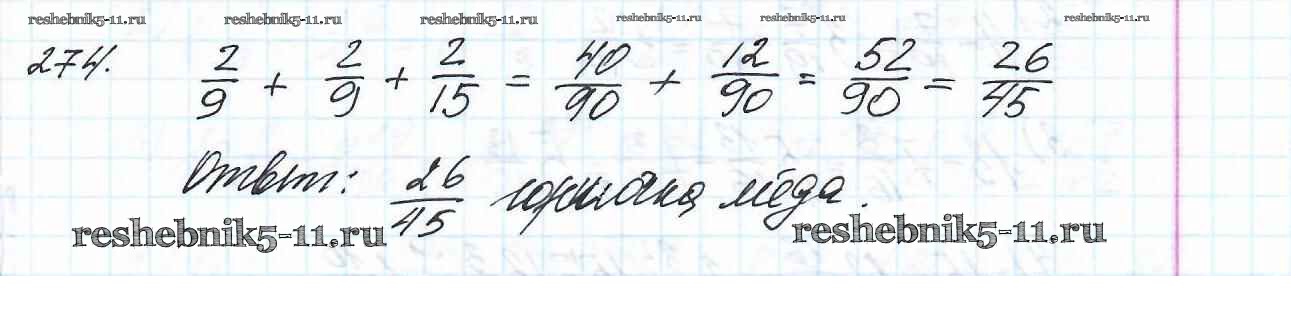 reshebnik5-11.ru reshebnik5-11.ru reshebnik5-11.ru reshebnik5-11.ru reshebnik5-11.ru reshebnik5-11.ru
274. 2/9 + 2/9 + 2/15 = 40/90 + 12/90 = 52/90 = 26/45
Ответ: 26/45 горшочка мёда.
reshebnik5-11.ru reshebnik5-11.ru